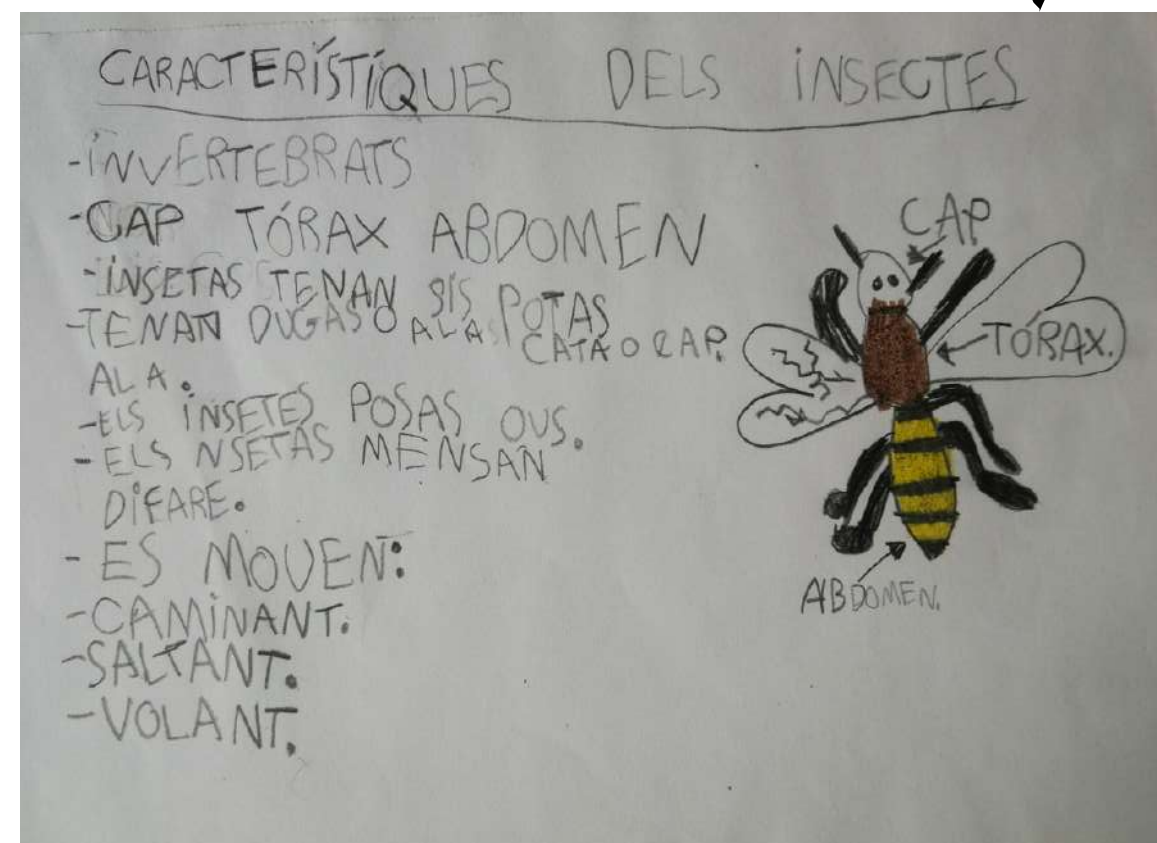 CARACTERÍSTIQUES DELS INSECTES
-INVERTEBRATS
-CAP TÓRAX ABDOMEN
-INSETAS TENAN SIS POTAS
-TENAN DUGAS O ALAS CATA O CAP.
ALA.
-ELS INSETES POSAS OUS.
-ELS NSETAS MENSAN
DIFARE.
-ES MOUEN:
-CAMINANT.
-SALTANT.
-VOLANT.
CAP
TÓRAX.
ABDOMEN.